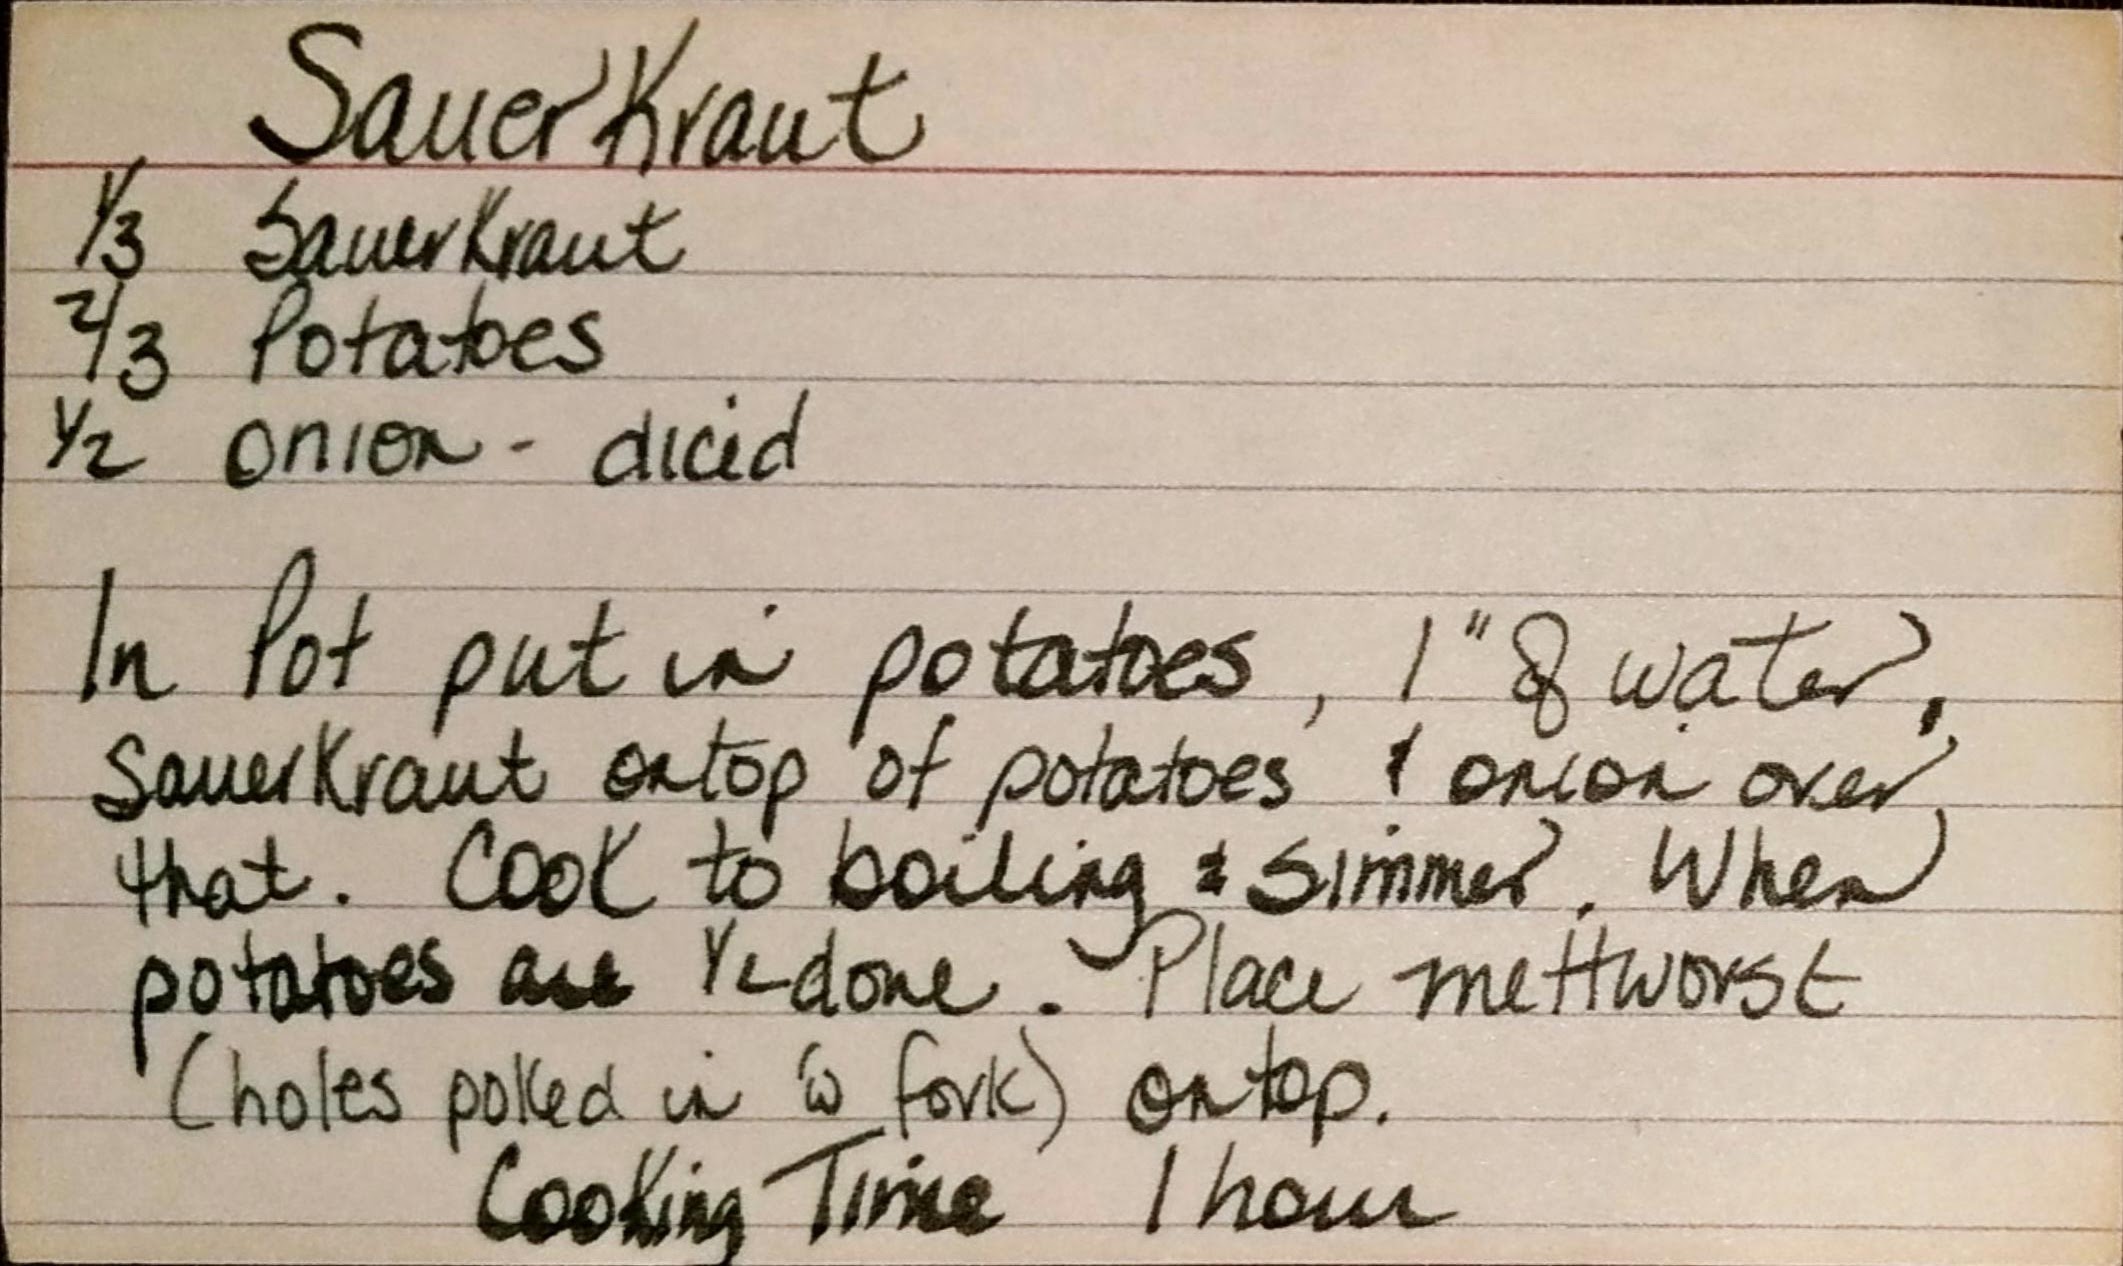 SauerKraut
1/3 SauerKraut
2/3 Potatoes
1/2 onion - diced
In Pot put in potatoes, 1" of water,
SauerKraut ontop of potatoes & onion over
that. Cook to boiling & simmer. When
potatoes are 1/2 done. Place mettworst
(holes poked in w fork) ontop.
Cooking Time 1 hour